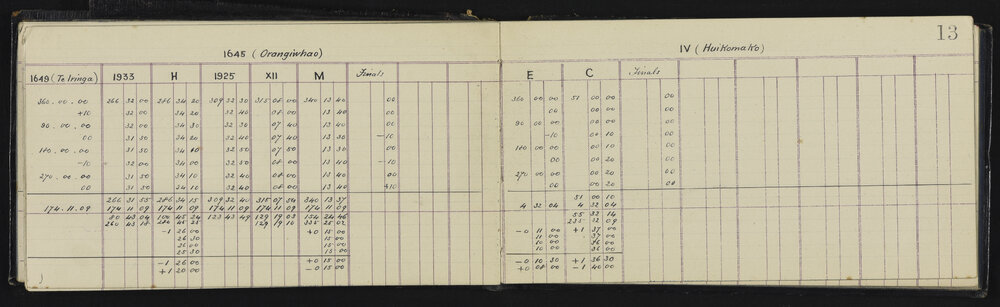 13
1645 (Orangiwhao)
1649 (Te Iringa) 1933 H 1925 XII M Finals
360.00.00 266 32 00 286 34 20 309 32 30 315 08 00 340 13 40 00
+10 32 00 34 20 32 40 08 00 13 40 00
90.00.00 32 00 34 30 32 30 07 40 13 40 00
00 31 30 34 20 32 40 07 40 13 30 -10
180.00.00 31 50 34 10 32 50 07 50 13 30 00
-10 32 00 34 00 32 50 08 00 13 40 -10
270.00.00 31 50 34 10 32 40 08 00 13 40 00
00 31 50 34 10 32 40 08 00 13 40 +10
266 31 55 286 34 15 309 32 40 315 07 54 340 13 37
174.11.09 174 11 09 174 11 09 174 11 09 174 11 09 174 11 09
80 43 04 100 45 24 123 43 49 129 19 03 154 24 46
260 43 18 280 45 25 129 19 10 335 25 02
-1 26 00 +0 15 00
26 30 15 00
26 00 15 00
25 30 15 00
-1 26 00 +0 15 00
+1 20 00 -0 15 00
IV (Huikomako)
E C Finals
360 00 00 51 00 00 00
00 00 00 00
90 00 00 00 00 00
-10 00 10 00
180 00 00 00 10 00
00 00 20 00
270 00 00 00 20 00
00 00 20 00
51 00 10
4 32 04 4 32 04
55 32 14
235 32 09
-0 11 00 +1 37 00
11 00 37 00
10 00 36 00
10 00 36 00
-0 10 30 +1 36 30
+0 08 00 -1 40 00